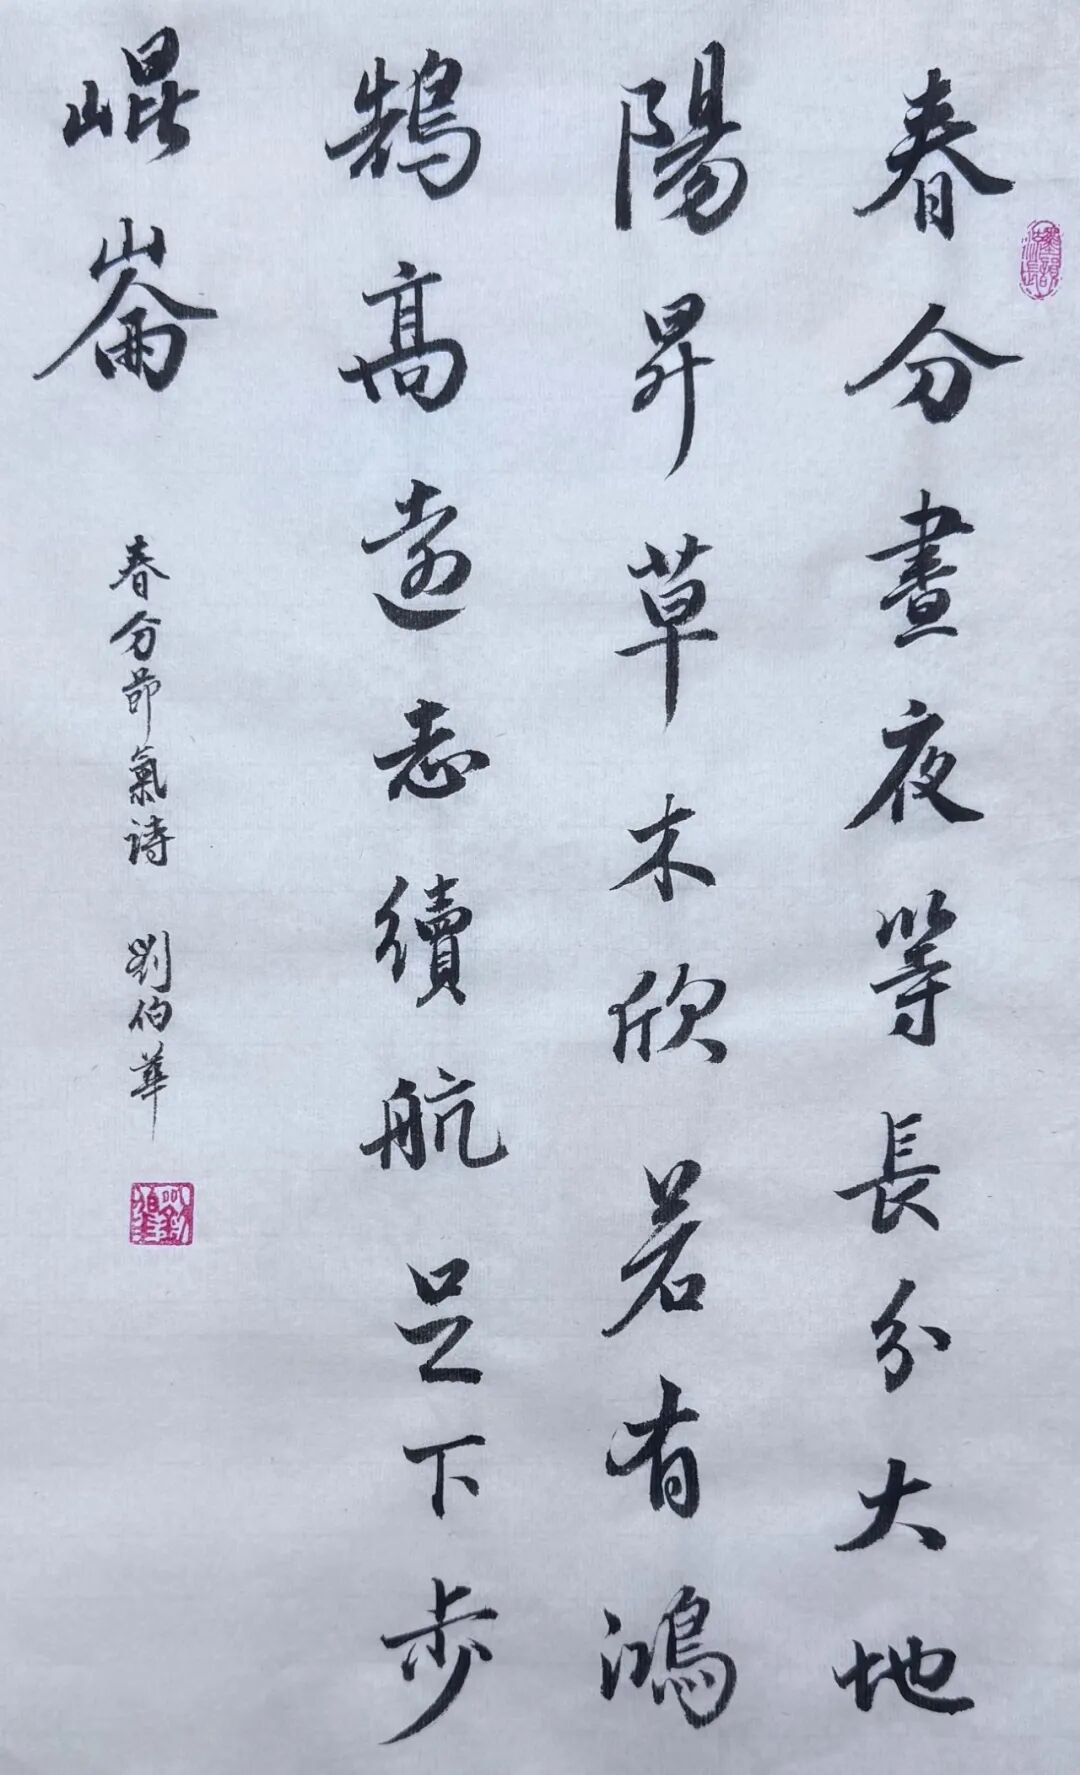 春分晝夜等長分大地
陽昇草木欣若有鴻
鵠高遠志續航足下步
崐崙
春分節氣诗 劉伯華